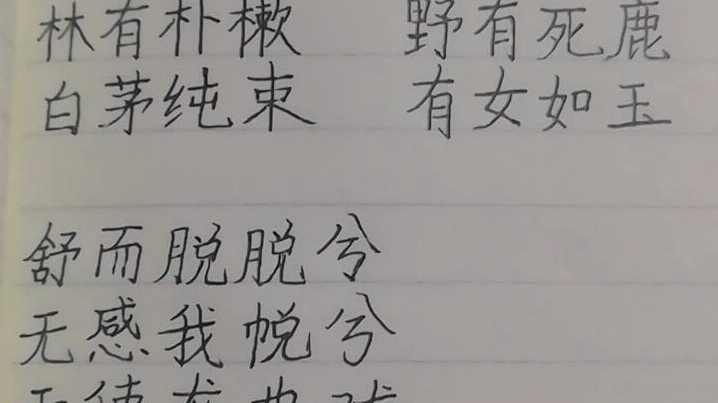 林有朴樕 野有死鹿
白茅纯束 有女如玉
舒而脱脱兮
无感我帨兮